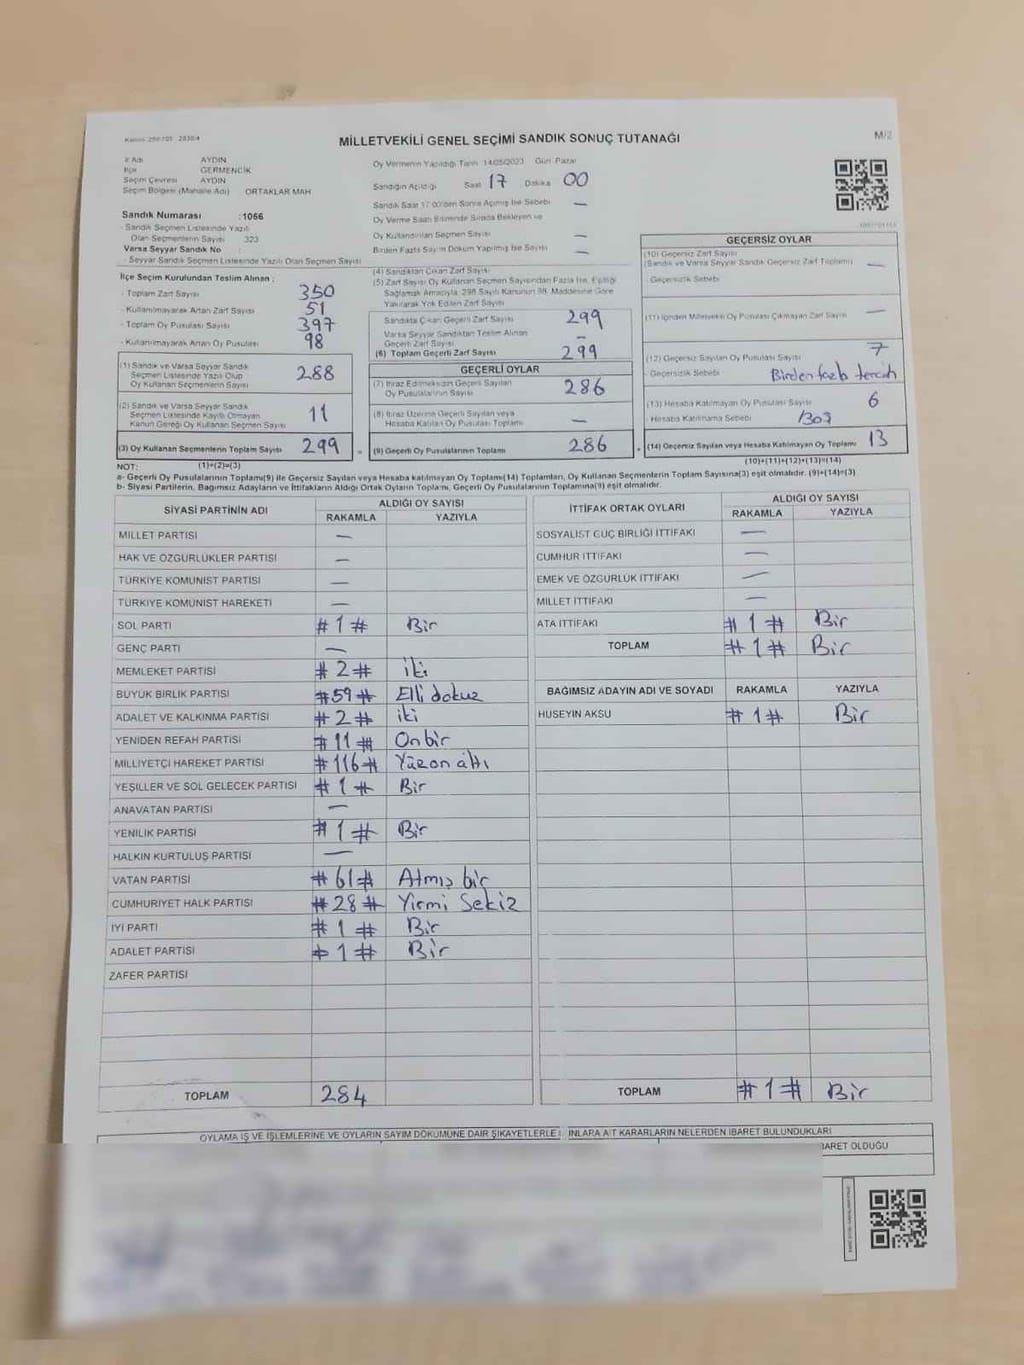 MİLLETVEKİLİ GENEL SEÇİMİ SANDIK SONUÇ TUTANAĞI
M/2
İl Adı AYDIN
İlçe GERMENCİK
Seçim Çevresi AYDIN
Seçim Bölgesi (Mahalle Adı) ORTAKLAR MAH
Sandık Numarası :1066
- Sandık Seçmen Listesinde Yazılı
Olan Seçmenlerin Sayısı 323
Varsa Seyyar Sandık No :
- Seyyar Sandık Seçmen Listesinde Yazılı Olan Seçmen Sayısı
Oy Vermenin Yapıldığı Tarih 14/05/2023 Gün Pazar
Sandığın Açıldığı Saat 17 Dakika 00
Sandık Saat 17.00'den Sonra Açılmış İse Sebebi —
Oy Verme Saati Bitiminde Sırada Bekleyen ve
Oy Kullandırılan Seçmen Sayısı —
Birden Fazla Sayım Döküm Yapılmış İse Sayısı —
İlçe Seçim Kurulundan Teslim Alınan :
- Toplam Zarf Sayısı 350
- Kullanılmayarak Artan Zarf Sayısı 51
- Toplam Oy Pusulası Sayısı 397
- Kullanılmayarak Artan Oy Pusulası 98
(1) Sandık ve Varsa Seyyar Sandık
Seçmen Listesinde Yazılı Olup
Oy Kullanan Seçmenlerin Sayısı 288
(2) Sandık ve Varsa Seyyar Sandık
Seçmen Listesinde Kayıtlı Olmayan
Kanun Gereği Oy Kullanan Seçmen Sayısı 11
(3) Oy Kullanan Seçmenlerin Toplam Sayısı 299
(4) Sandıktan Çıkan Zarf Sayısı
(5) Zarf Sayısı Oy Kullanan Seçmen Sayısından Fazla İse, Eşitliği
Sağlamak Amacıyla, 298 Sayılı Kanunun 98. Maddesine Göre
Yakılarak Yok Edilen Zarf Sayısı
Sandıkta Çıkan Geçerli Zarf Sayısı 299
Varsa Seyyar Sandıktan Teslim Alınan
Geçerli Zarf Sayısı —
(6) Toplam Geçerli Zarf Sayısı 299
GEÇERLİ OYLAR
(7) İtiraz Edilmeksizin Geçerli Sayılan
Oy Pusulalarının Sayısı 286
(8) İtiraz Üzerine Geçerli Sayılan veya
Hesaba Katılan Oy Pusulası Toplamı —
(9) Geçerli Oy Pusulalarının Toplamı 286
GEÇERSİZ OYLAR
(10) Geçersiz Zarf Sayısı
(Sandık ve Varsa Seyyar Sandık Geçersiz Zarf Toplamı) —
- Geçersizlik Sebebi
(11) İçinden Milletvekili Oy Pusulası Çıkmayan Zarf Sayısı —
(12) Geçersiz Sayılan Oy Pusulası Sayısı 7
- Geçersizlik Sebebi Birden fazla tercih
(13) Hesaba Katılmayan Oy Pusulası Sayısı 6
Hesaba Katılmama Sebebi
(14) Geçersiz Sayılan veya Hesaba Katılmayan Oy Toplamı 13
NOT: (1)+(2)=(3) (10)+(11)+(12)+(13)=(14)
a- Geçerli Oy Pusulalarının Toplamı(9) ile Geçersiz Sayılan veya Hesaba katılmayan Oy Toplamı(14) Toplamları, Oy Kullanan Seçmenlerin Toplam Sayısına(3) eşit olmalıdır. (9)+(14)=(3)
b- Siyasi Partilerin, Bağımsız Adayların ve İttifakların Aldığı Ortak Oyların Toplamı, Geçerli Oy Pusulalarının Toplamına(9) eşit olmalıdır.
SİYASİ PARTİNİN ADI ALDIĞI OY SAYISI
RAKAMLA YAZIYLA
MİLLET PARTİSİ —
HAK VE ÖZGÜRLÜKLER PARTİSİ —
TÜRKİYE KOMÜNİST PARTİSİ —
TÜRKİYE KOMÜNİST HAREKETİ —
SOL PARTİ #1# Bir
GENÇ PARTİ —
MEMLEKET PARTİSİ #2# iki
BÜYÜK BİRLİK PARTİSİ #59# Elli dokuz
ADALET VE KALKINMA PARTİSİ #2# iki
YENİDEN REFAH PARTİSİ #11# Onbir
MİLLİYETÇİ HAREKET PARTİSİ #116# Yüzon altı
YEŞİLLER VE SOL GELECEK PARTİSİ #1# Bir
ANAVATAN PARTİSİ —
YENİLİK PARTİSİ #1# Bir
HALKIN KURTULUŞ PARTİSİ —
VATAN PARTİSİ #61# Atmış bir
CUMHURİYET HALK PARTİSİ #28# Yirmi Sekiz
İYİ PARTİ #1# Bir
ADALET PARTİSİ #1# Bir
ZAFER PARTİSİ
TOPLAM 284
İTTİFAK ORTAK OYLARI ALDIĞI OY SAYISI
RAKAMLA YAZIYLA
SOSYALİST GÜÇ BİRLİĞİ İTTİFAKI —
CUMHUR İTTİFAKI —
EMEK VE ÖZGÜRLÜK İTTİFAKI —
MİLLET İTTİFAKI —
ATA İTTİFAKI #1# Bir
TOPLAM #1# Bir
BAĞIMSIZ ADAYIN ADI VE SOYADI RAKAMLA YAZIYLA
HÜSEYİN AKSU #1# Bir
TOPLAM #1# Bir
OYLAMA İŞ VE İŞLEMLERİNE VE OYLARIN SAYIM DÖKÜMÜNE DAİR ŞİKAYETLERLE
NLARA AİT KARARLARIN NELERDEN İBARET BULUNDUKLARI
BARET OLDUĞU